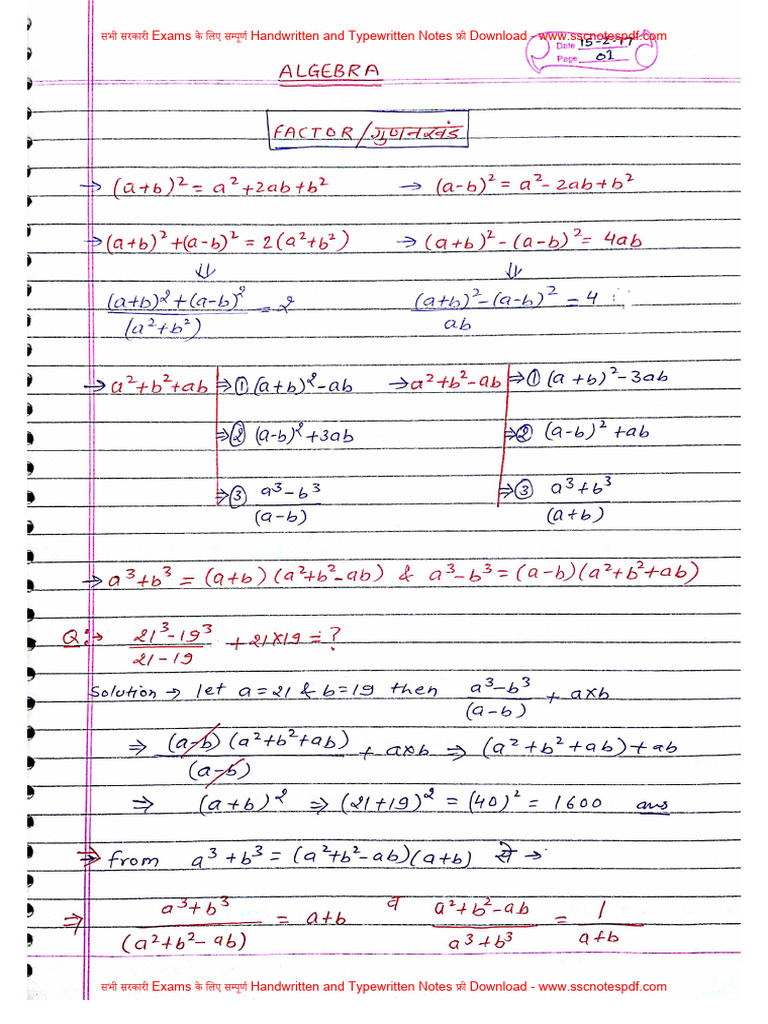 सभी सरकारी Exams के लिए सम्पूर्ण Handwritten and Typewritten Notes फ्री Download - www.sscnotespdf.com
Date 15-2-17
Page 01
ALGEBRA
FACTOR/गुणनखंड
→ (a+b)² = a²+2ab+b² → (a-b)² = a²-2ab+b²
→ (a+b)²+(a-b)² = 2(a²+b²) → (a+b)²-(a-b)² = 4ab
⇓ ⇓
(a+b)²+(a-b)² / (a²+b²) = 2 (a+b)²-(a-b)² / ab = 4
→ a²+b²+ab ⇒ ① (a+b)²-ab → a²+b²-ab ⇒ ① (a+b)²-3ab
⇒ ② (a-b)²+3ab ⇒ ② (a-b)²+ab
⇒ ③ a³-b³ / (a-b) ⇒ ③ a³+b³ / (a+b)
→ a³+b³ = (a+b)(a²+b²-ab) & a³-b³ = (a-b)(a²+b²+ab)
Q:→ 21³-19³ / 21-19 + 21×19 = ?
Solution → let a=21 & b=19 then a³-b³ / (a-b) + a×b
⇒ (a-b)(a²+b²+ab) / (a-b) + a×b ⇒ (a²+b²+ab)+ab
⇒ (a+b)² ⇒ (21+19)² = (40)² = 1600 ans
⇒ from a³+b³ = (a²+b²-ab)(a+b) से →
⇒ a³+b³ / (a²+b²-ab) = a+b व a²+b²-ab / a³+b³ = 1 / a+b
सभी सरकारी Exams के लिए सम्पूर्ण Handwritten and Typewritten Notes फ्री Download - www.sscnotespdf.com